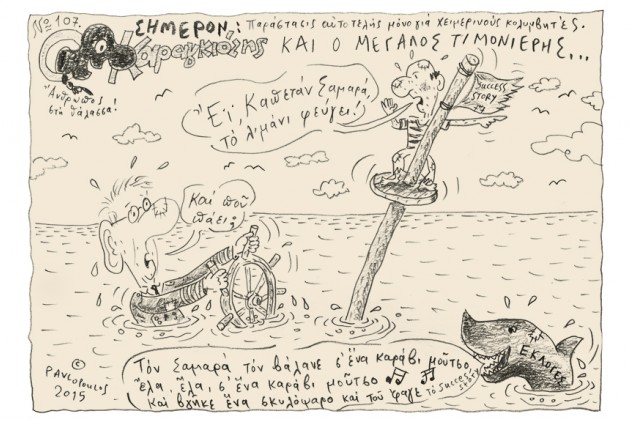 Νο 107.
ΣΗΜΕΡΟΝ: Παράστασις αὐτοτελής μόνο για χειμερινούς κολυμβητές.
Ο Καραγκιόζης
ΚΑΙ Ο ΜΕΓΑΛΟΣ ΤΙΜΟΝΙΕΡΗΣ...
Ἄνθρωπος
στη θάλασσα!
Ἔϊ, Καπετάν Σαμαρά,
Τὸ λιμάνι φεύγει!
SUCCESS
STORY
Καὶ ποῦ
πάει;
ΕΚΛΟΓΕΣ
Τὸν Σαμαρά τὸν βάλανε σ' ἕνα καράβι μοῦτσο,
ἔλα, ἔλα, σ' ἕνα καράβι μοῦτσο
Καὶ βγῆκε ἕνα σκυλόψαρο καὶ τοῦ 'φαγε τὸ Success story
©
PAVLOPOULOS
2015